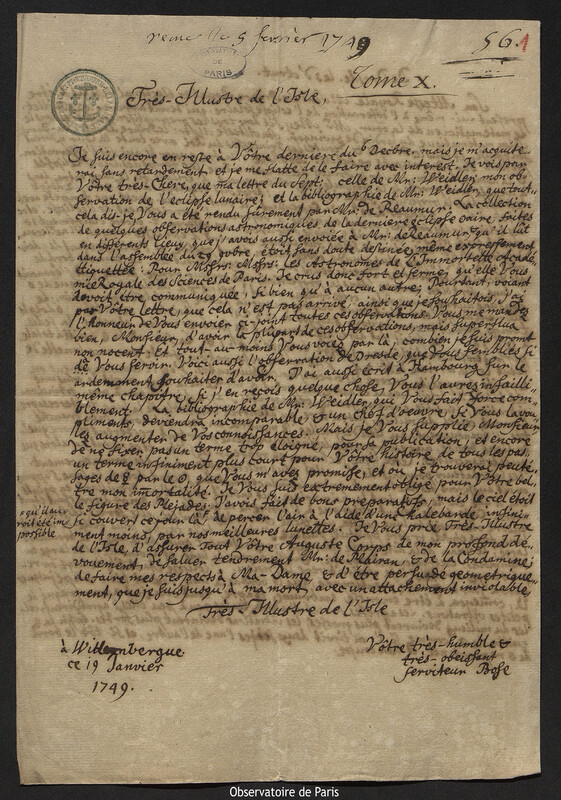 reçue le 5 février 1749
56.1
PARIS
Tome X.
Très-Illustre de l'Isle,
Je suis encore en reste à Vôtre derniere du 6 Decbre. mais je m'acquite
rai sans retardement et je me flatte de le faire avec interest. Je vois par
Vôtre très-Chere, que ma lettre du Sept; celle de Mr: Weidler, mon ob-
servation de l'eclipse lunaire; et la bibliographie de Mr: Weidler, que tout
cela dis-je Vous a été rendu surement par Mr: de Reaumur. La collection
de quelques observations astronomiques de la derniere eclipse solaire, faites
en differents lieux, que j'avois aussi envoiée à Mr: de Reaumur, qu'il lut
dans l'assemblée du 29 9bre, étoit sans doute destinée, même expressement
etiquettée: Pour Msgrs: Msgrs: les Astronomes de L'Immortelle Acadé
mie Royale des Sciences de Paris. Je crus donc fort et ferme, qu'elle Vous
devoit être communiquée, si bien qu'à aucun autre. Pourtant, voiant
par Vôtre lettre, que cela n'est pas arrivé, ainsi que je souhaitois, J'ai
l'Honneur de Vous envoier ci-joint toutes ces observations. Vous me mandez
bien, Monsieur, d'avoir la plupart de ces observations, mais superflua
non nocent. Et tout au moins Vous voiez par là, combien je suis promt
de Vous servir. Voici aussi l'observation de Dresde, que Vous semblies si
ardemment souhaiter d'avoir. J'ai aussi ecrit à Hambourg sur le
même chapitre; si j'en reçois quelque chose, Vous l'aures infailli-
blement. La bibliographie de Mr: Weidler, qui Vous fait force com-
pliments, devendra incomparable, & un chef d'oeuvre, si Vous la vou
lez augmenter de Vos connoissances. Mais je Vous supplie, Monsieur
de ne fixer pas un terme trop eloigné, pour sa publication; et encore
un terme infiniment plus court pour Vôtre histoire de tous les pas-
sages de ☿ par le ☉, que Vous m'aves promise, et où je trouverai peutê-
tre mon immortalité. Je Vous suis extremement obligé pour Vôtre bel-
le figure des Plejades. J'avois fait de bons preparatifs, mais le ciel étoit
si couvert ce jour là, * de percer l'air à l'aide d'une halebarde, infini-
ment moins, par nos meilleures lunettes. Je Vous prie Très-Illustre
de l'Isle, d'assurer Tout Vôtre Auguste Corps de mon profond dé-
vouement, de saluer tendrement Mr: de Mairan, & de la Condamine;
de faire mes respects à Ma-Dame & d'être persuadé geometrique-
ment, que je suis jusqu'à ma mort, avec un attachement inviolable,
* qu'il au
roit été im
possible
Très-Illustre de l'Isle
à Wittembergue
ce 19 Janvier
1749.
Vôtre très-humble &
très-obeissant
serviteur Bose
Observatoire de Paris